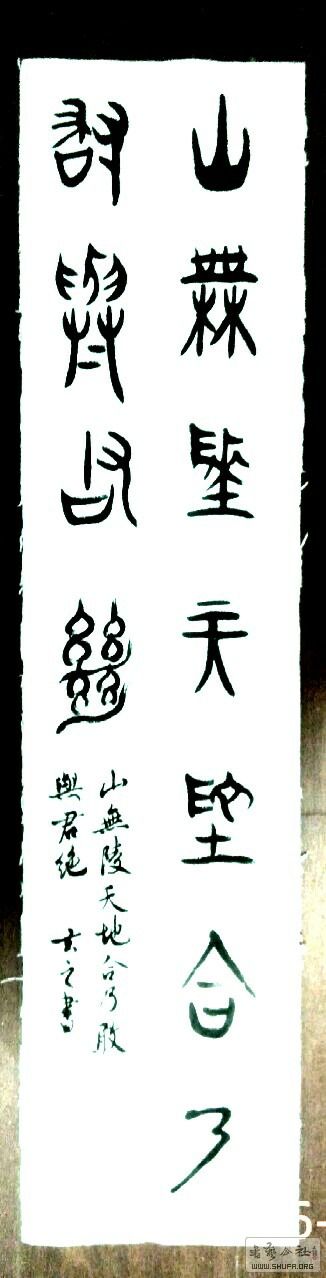 山無陵天地合乃
敢與君絕
山無陵天地合乃敢
與君絕 玄之書
5-
书艺公社
WWW.SHUFA.ORG